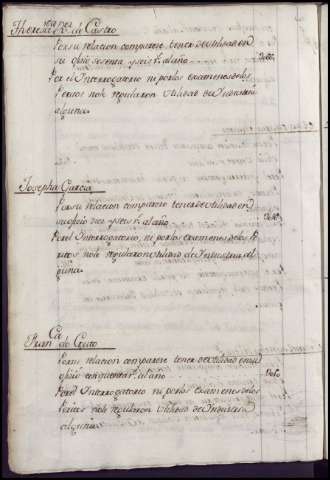 Theresa de Castro
Por su relacion comparece tener de utilidad en
su ofizio sesenta y seis rs. al año
Por el Interrogatorio ni por los examenes de los
Peritos no le regularon utilidad de Industria
alguna.
Josepha Garcia
Por su relacion comparece tener de utilidad en
su ofizio diez y seis rs. al año
Por el Interrogatorio, ni por los examenes de los Pe
ritos no le regularon utilidad de Industria al
guna.
Juan de Couto
Por su relacion comparece tener de utilidad en su
ofizio cinquenta rs. al año
Por el Interrogatorio ni por los examenes de los
Peritos no le regularon utilidad de Industria
alguna